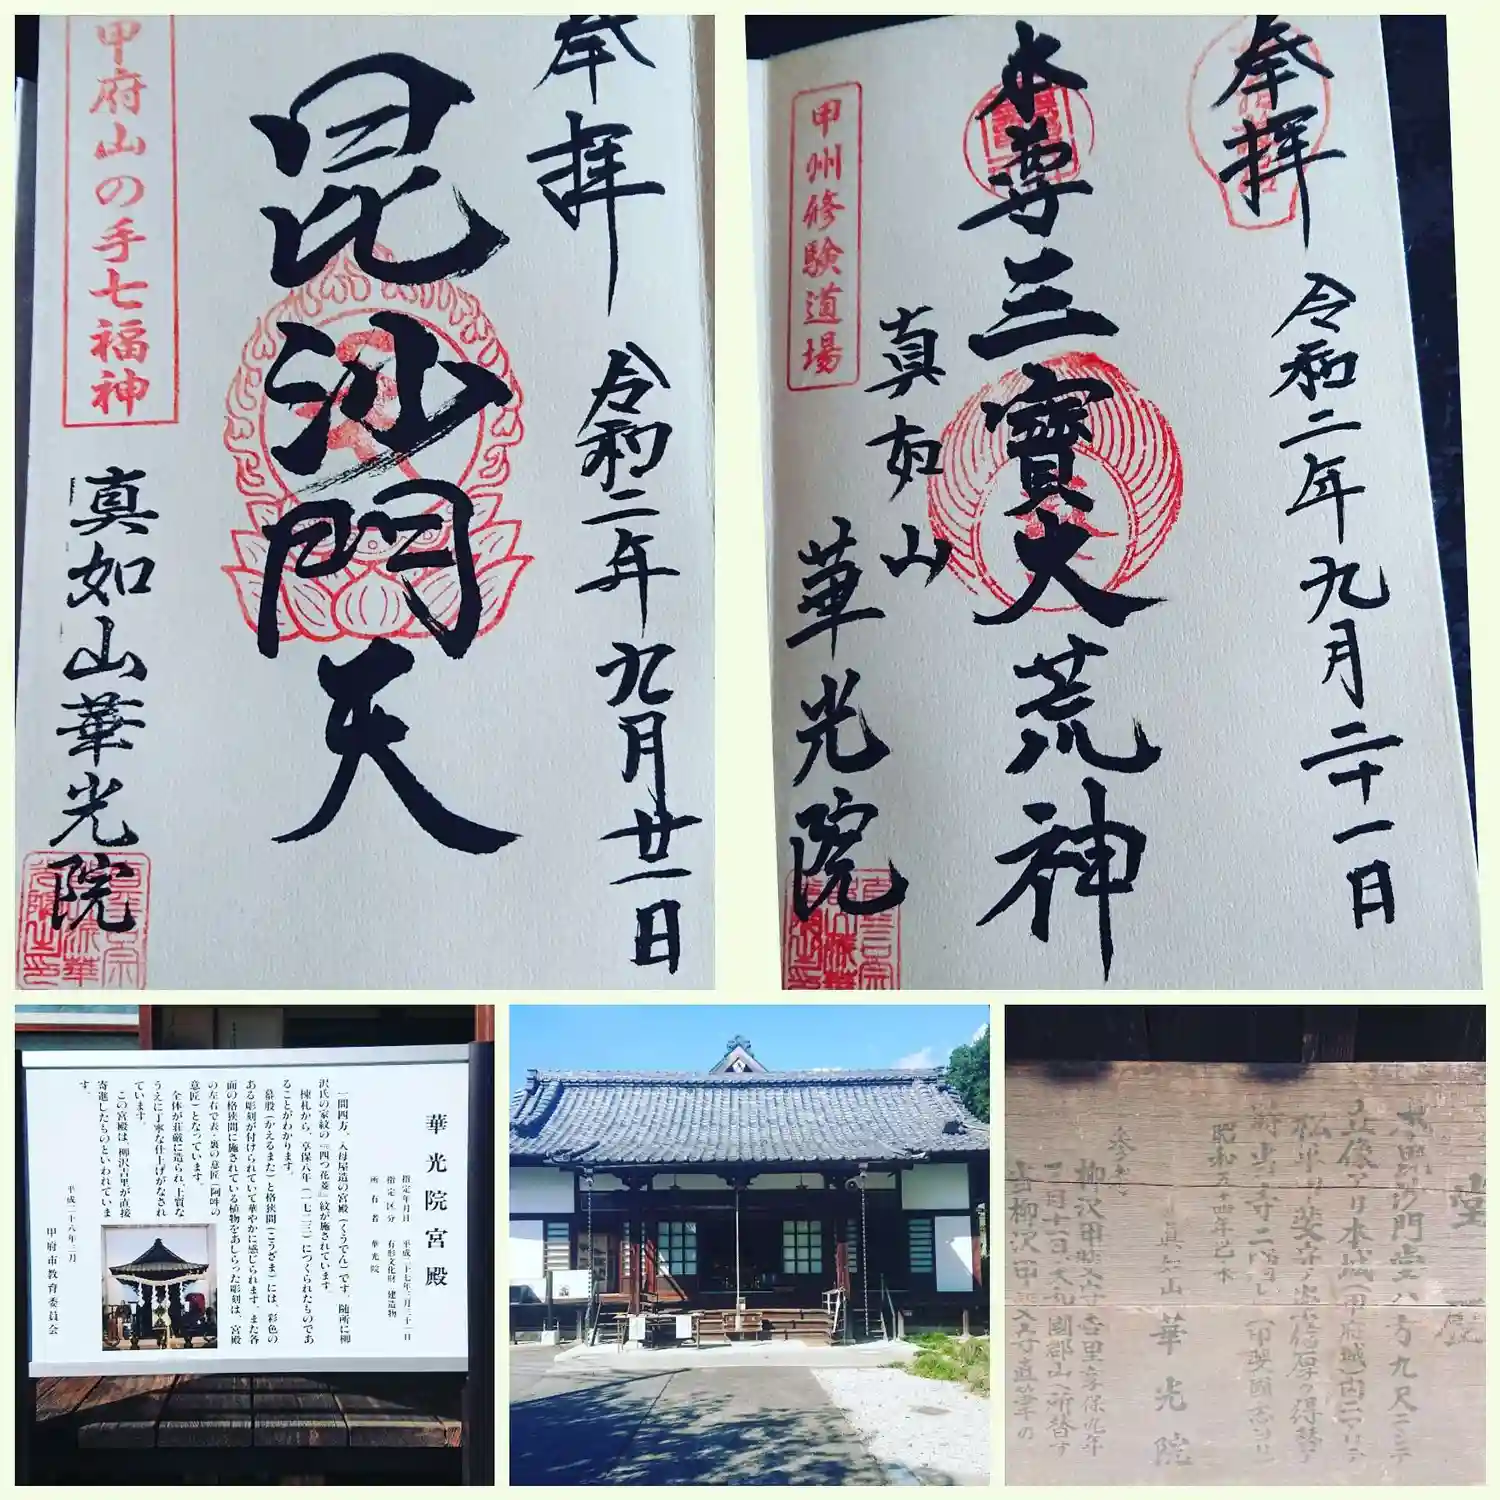 奉拝
令和二年九月廿一日
毘沙門天
甲府山の手七福神
真如山華光院
奉拝
令和二年九月二十一日
本尊三寶大荒神
甲州修験道場
真如山
華光院
華光院宮殿
指定年月日　平成二十七年三月三十一日
指定区分　有形文化財　建造物
所有者　華光院
一間四方、入母屋造の宮殿(くうでん)です。随所に柳
沢氏の家紋の『四つ花菱』紋が施されています。
棟札から、享保八年(一七二三)につくられたものであ
ることがわかります。
蟇股(かえるまた)と格狭間(こうざま)には、彩色の
ある彫刻が付けられていて華やかに感じられます。また各
面の格狭間に施されている植物をあしらった彫刻は、宮殿
の左右で表・裏の意匠(阿吽の
意匠)となっています。
全体が荘厳に造られ、上質な
うえに丁寧な仕上げがなされ
ています。
この宮殿は、柳沢吉里が直接
寄進したものといわれていま
す。
平成二十八年三月
甲府市教育委員会
毘沙門堂八方九尺二
昭和五十四年
真如山
華光院
柳沢甲斐 吉里享保九年
三月十一日大和国郡山へ所替す